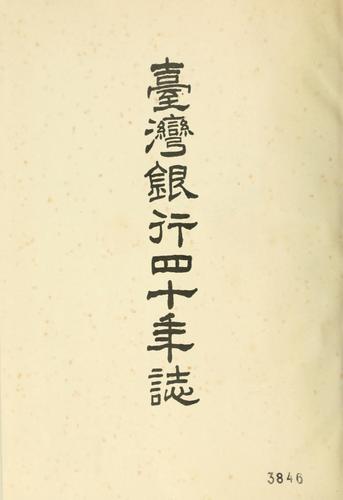 臺灣銀行四十年誌
3846